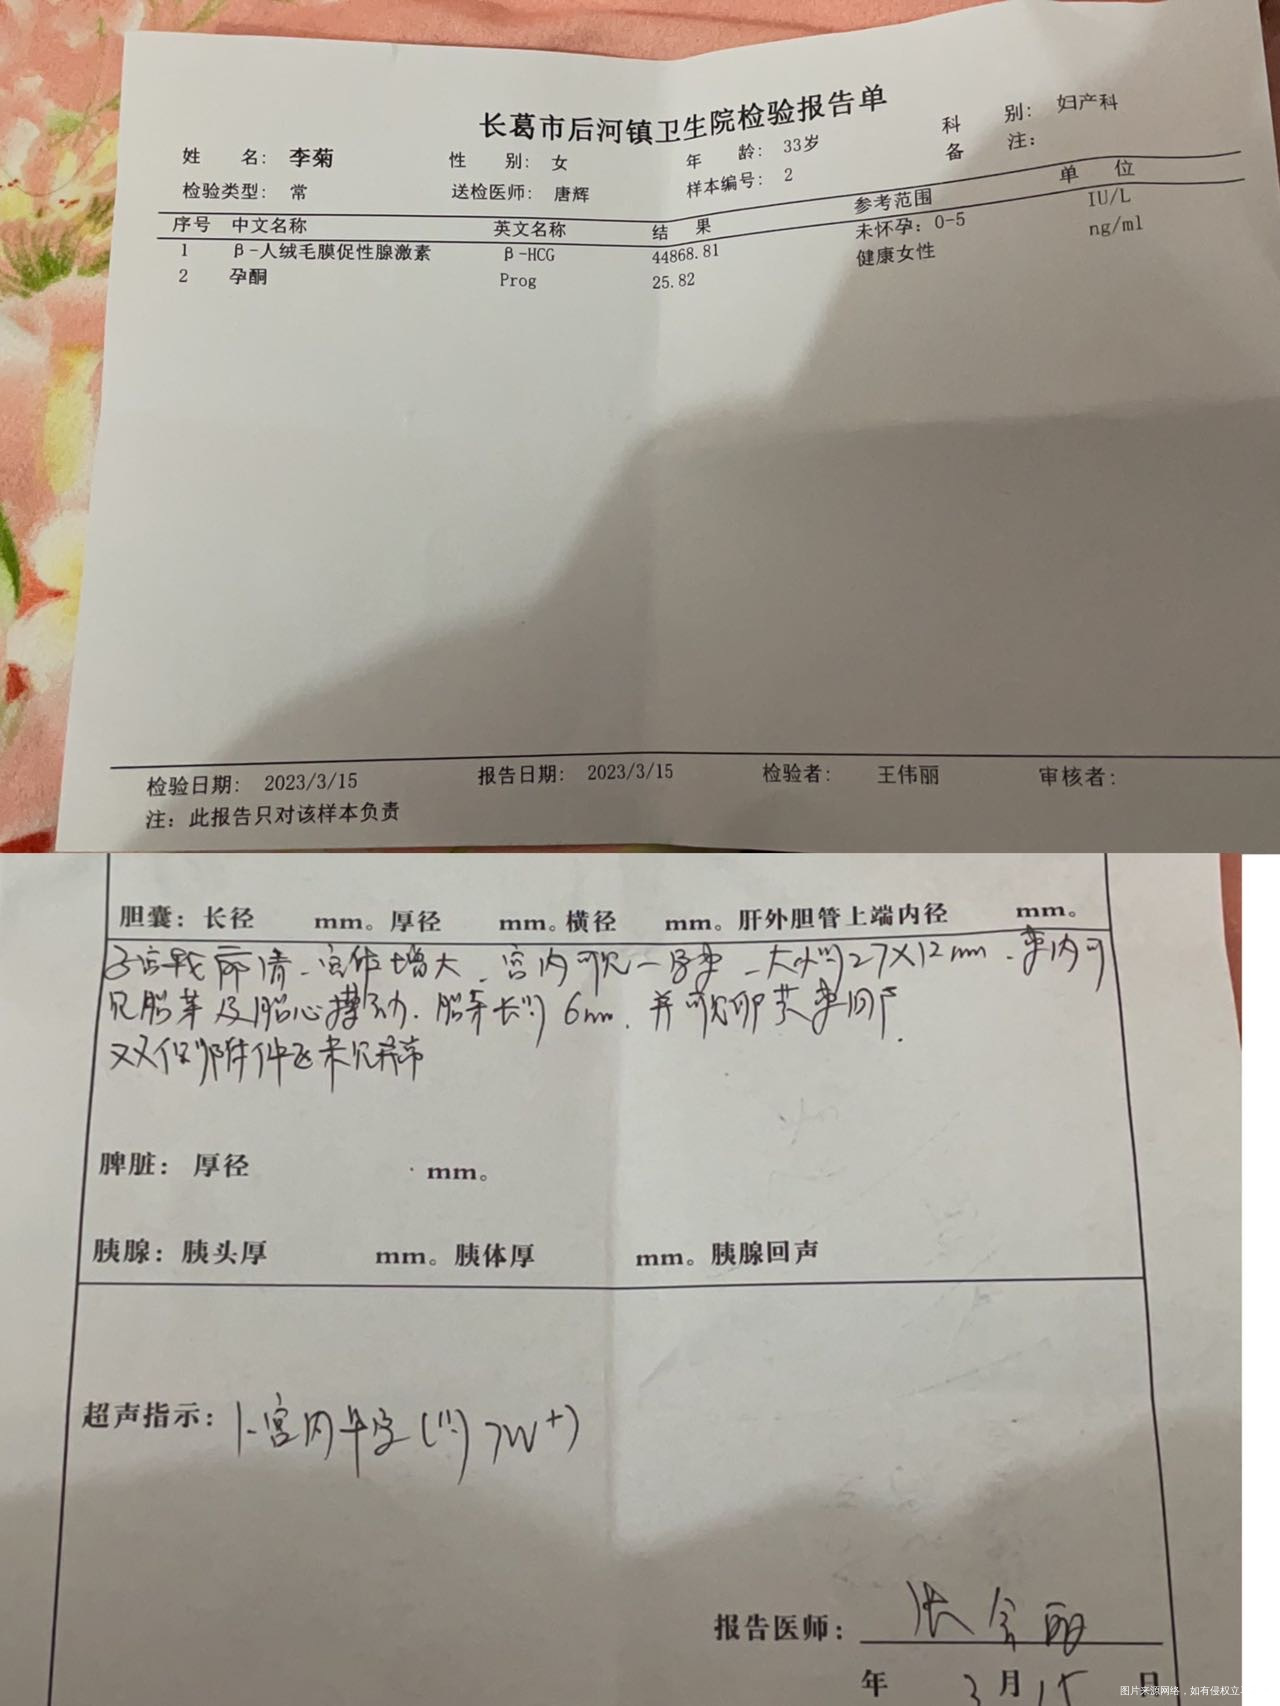 长葛市后河镇卫生院检验报告单
姓 名: 李菊 性 别: 女 年 龄: 33岁 科 别: 妇产科
检验类型: 常 送检医师: 唐辉 样本编号: 2 备 注:
序号 中文名称 英文名称 结 果 参考范围 单 位
1 β-人绒毛膜促性腺激素 β-HCG 44868.81 未怀孕: 0-5 IU/L
2 孕酮 Prog 25.82 健康女性 ng/ml
检验日期: 2023/3/15 报告日期: 2023/3/15 检验者: 王伟丽 审核者:
注: 此报告只对该样本负责
胆囊: 长径 mm。厚径 mm。横径 mm。肝外胆管上端内径 mm。
子宫 清 宫体增大 宫内可见一孕囊 大小约27×12mm 囊内可
见胎芽及胎心搏动. 胎芽长约6mm. 并可见卵黄囊回声.
双侧附件区未见异常
脾脏: 厚径 mm。
胰腺: 胰头厚 mm。胰体厚 mm。胰腺回声
超声指示: 1.宫内早孕(约7W+)
报告医师: 张会丽
年 3月15日
图片来源网络，如有侵权立